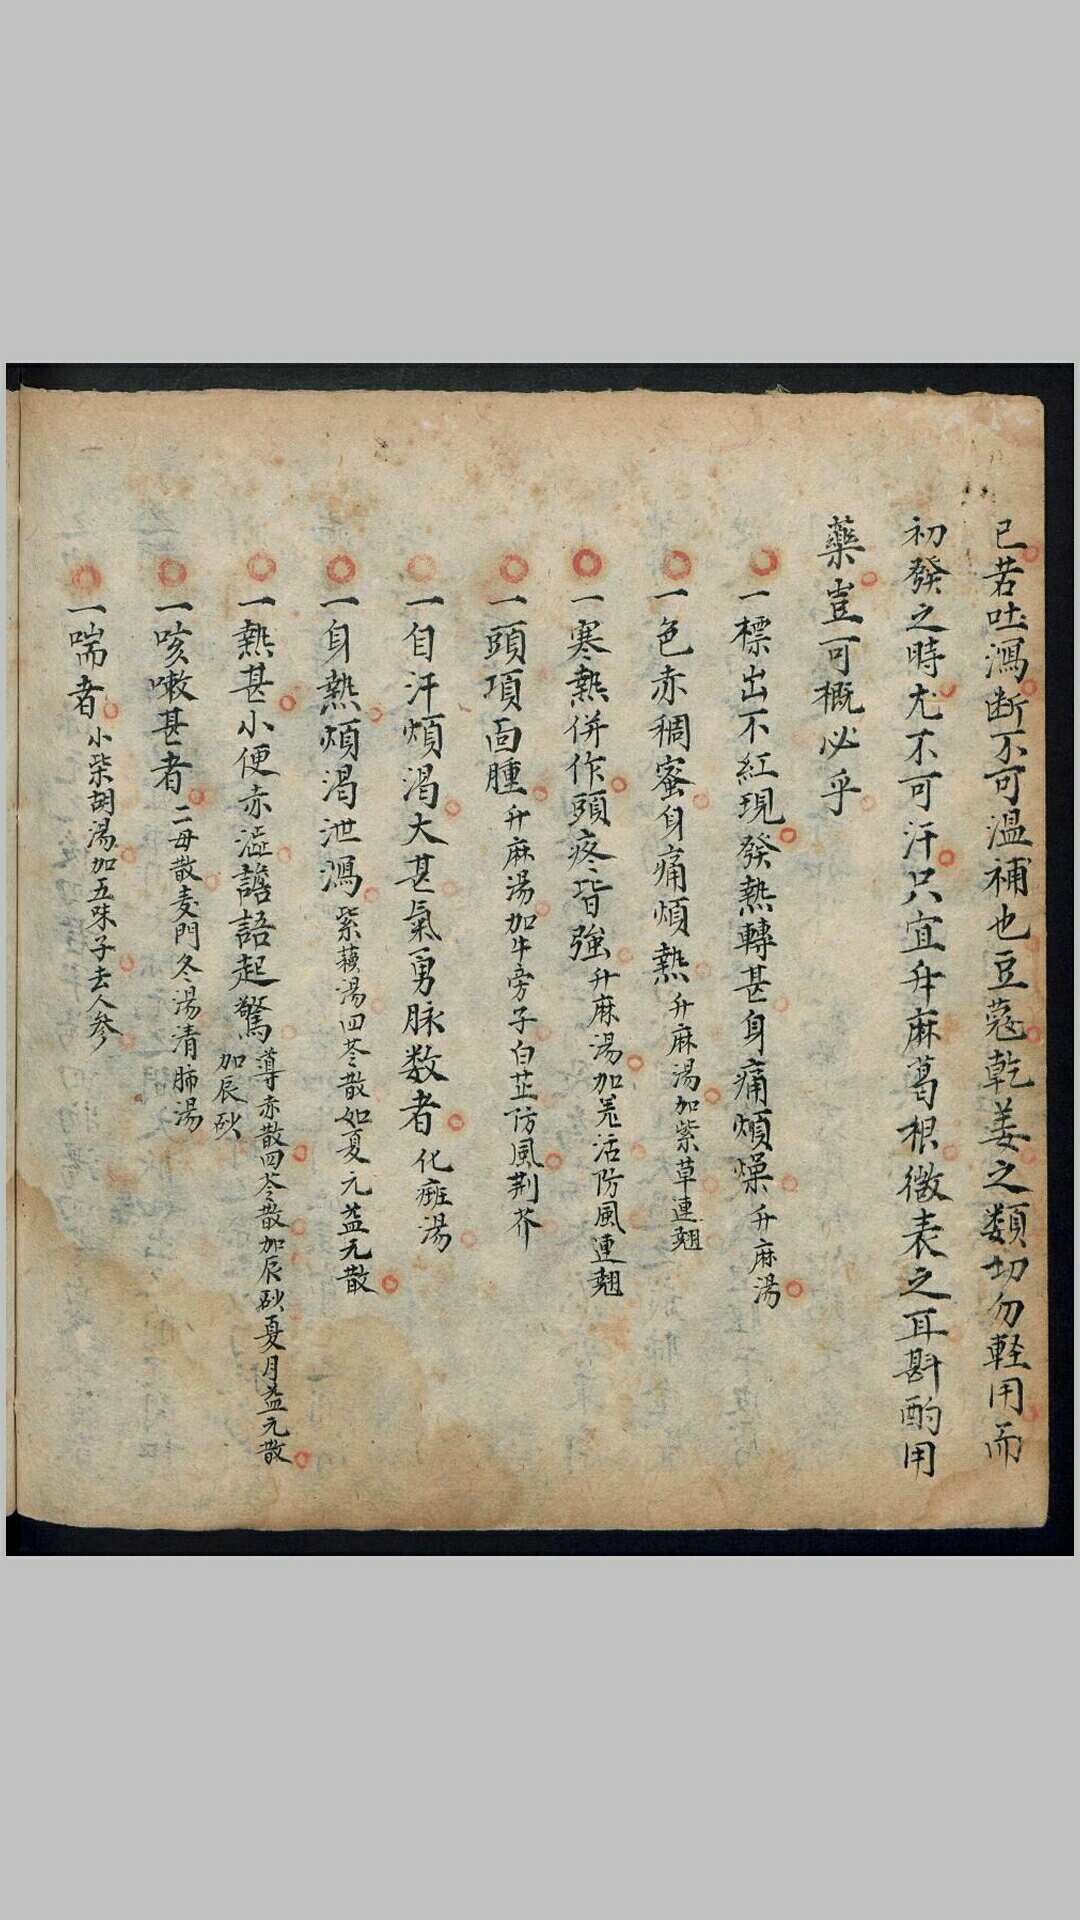 已若吐瀉断不可温補也豆蔻乾姜之類切勿軽用而
初發之時尤不可汗只宜升麻葛根微表之耳斟酌用
藥豈可概必乎
一標出不紅現發熱轉甚身痛煩燥升麻湯
一色赤稠蜜身痛煩熱升麻湯加紫草連翹
一寒熱併作頭疼皆強升麻湯加羗活防風連翹
一頭項面腫升麻湯加牛旁子白芷防風荆芥
一自汗煩渴大甚氣勇脉数者化癍湯
一身熱煩渴泄瀉紫蘓湯四苓散如夏元益元散
一熱甚小便赤澁譫語起驚導赤散四苓散加辰砂夏月益元散
加辰砂
一咳嗽甚者二母散麦門冬湯清肺湯
一喘者小柴胡湯加五味子去人參